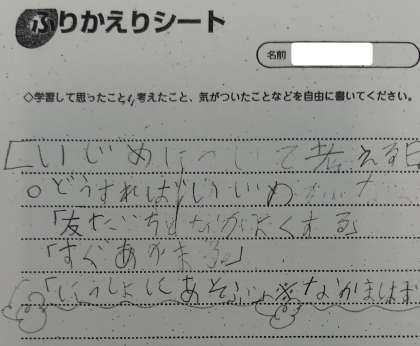 ふりかえりシート
名前
◇学習して思ったこと、考えたこと、気がついたことなどを自由に書いてください。
いじめについて考える日
○どうすればいい
「友だちとなかよくする」
「すぐあやまる」
「いっしょにあそぶ」※なかまはず